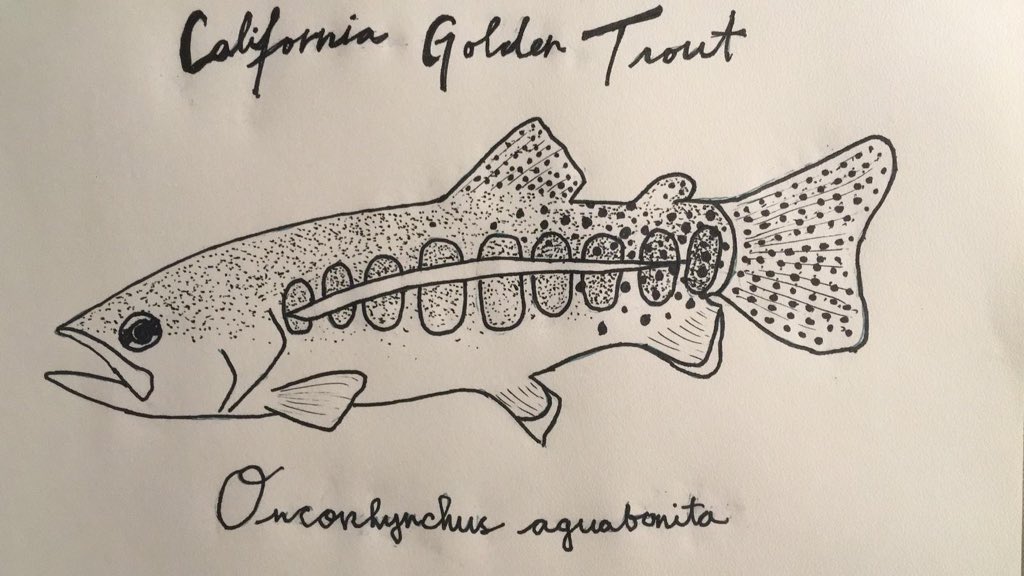 California Golden Trout
Oncorhynchus aguabonita